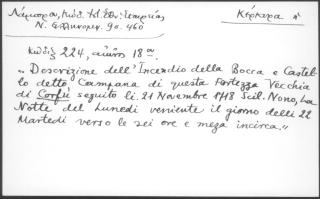 Λάμπρου, Κώδ. Ἱστ. Ἐθν. Ἑταιρείας Κέρκυρα
Ν. Ἑλληνομν. 9ος 460
Κῶδιξ 224, αἰῶνος 18ου.
"Descrizione dell'Incendio della Bocca e Castel-
lo detto Campana di questa Fortezza Vecchia
di Corfù seguito li. 21 Novembre 1718 Stil. Novo, La
Notte del Lunedi veniente il giorno delli 22
Martedi verso le sei ore e meza incirca."